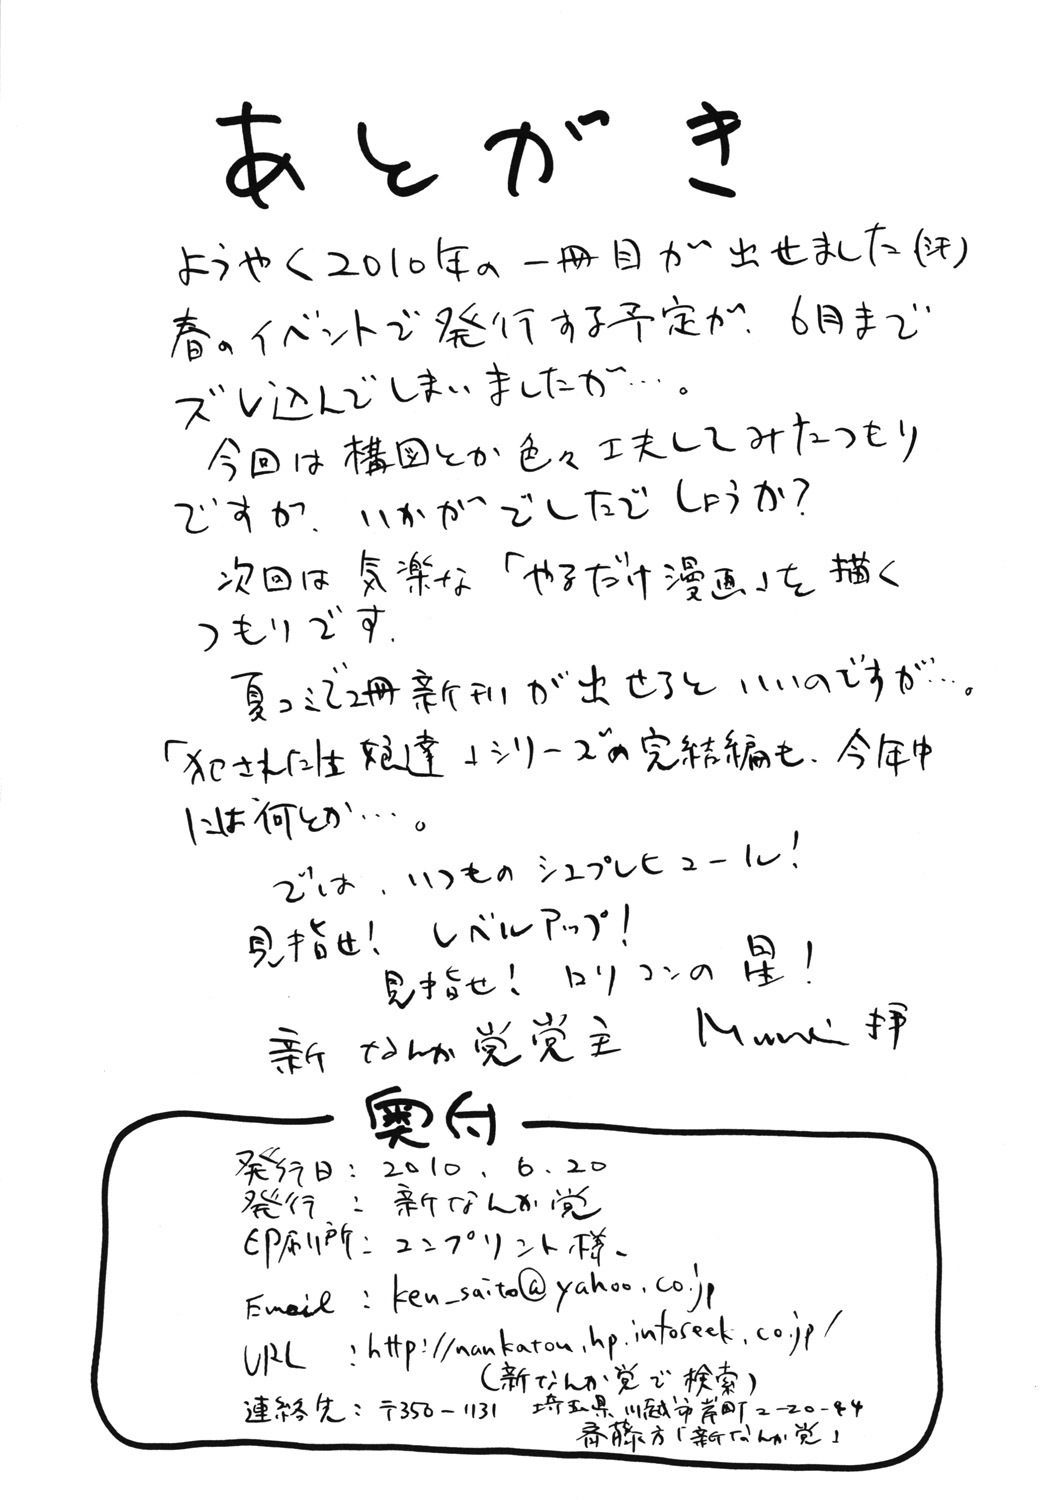 あとがき
ようやく2010年の一冊目が出せました(汗)
春のイベントで発行する予定が、6月まで
ズレ込んでしまいましたが…。
今回は構図とか色々工夫してみたつもり
ですが、いかがでしたでしょうか?
次回は気楽な「やるだけ漫画」を描く
つもりです。
夏コミで2冊新刊が出せるといいのですが…。
「犯された生娘達」シリーズの完結編も、今年中
には何とか…。
では、いつものシュプレヒコール!
見指せ! レベルアップ!
見指せ! ロリコンの星!
新なんか党党主 拝
奥付
発行日:2010.6.20
発行:新なんか党
印刷所:コンプリント様。
Email:ken_saito@yahoo.co.jp
URL:http://nankatou.hp.infoseek.co.jp/
(新なんか党で検索)
連絡先:〒350-1131 埼玉県川越市岸町2-20-44
斉藤方「新なんか党」